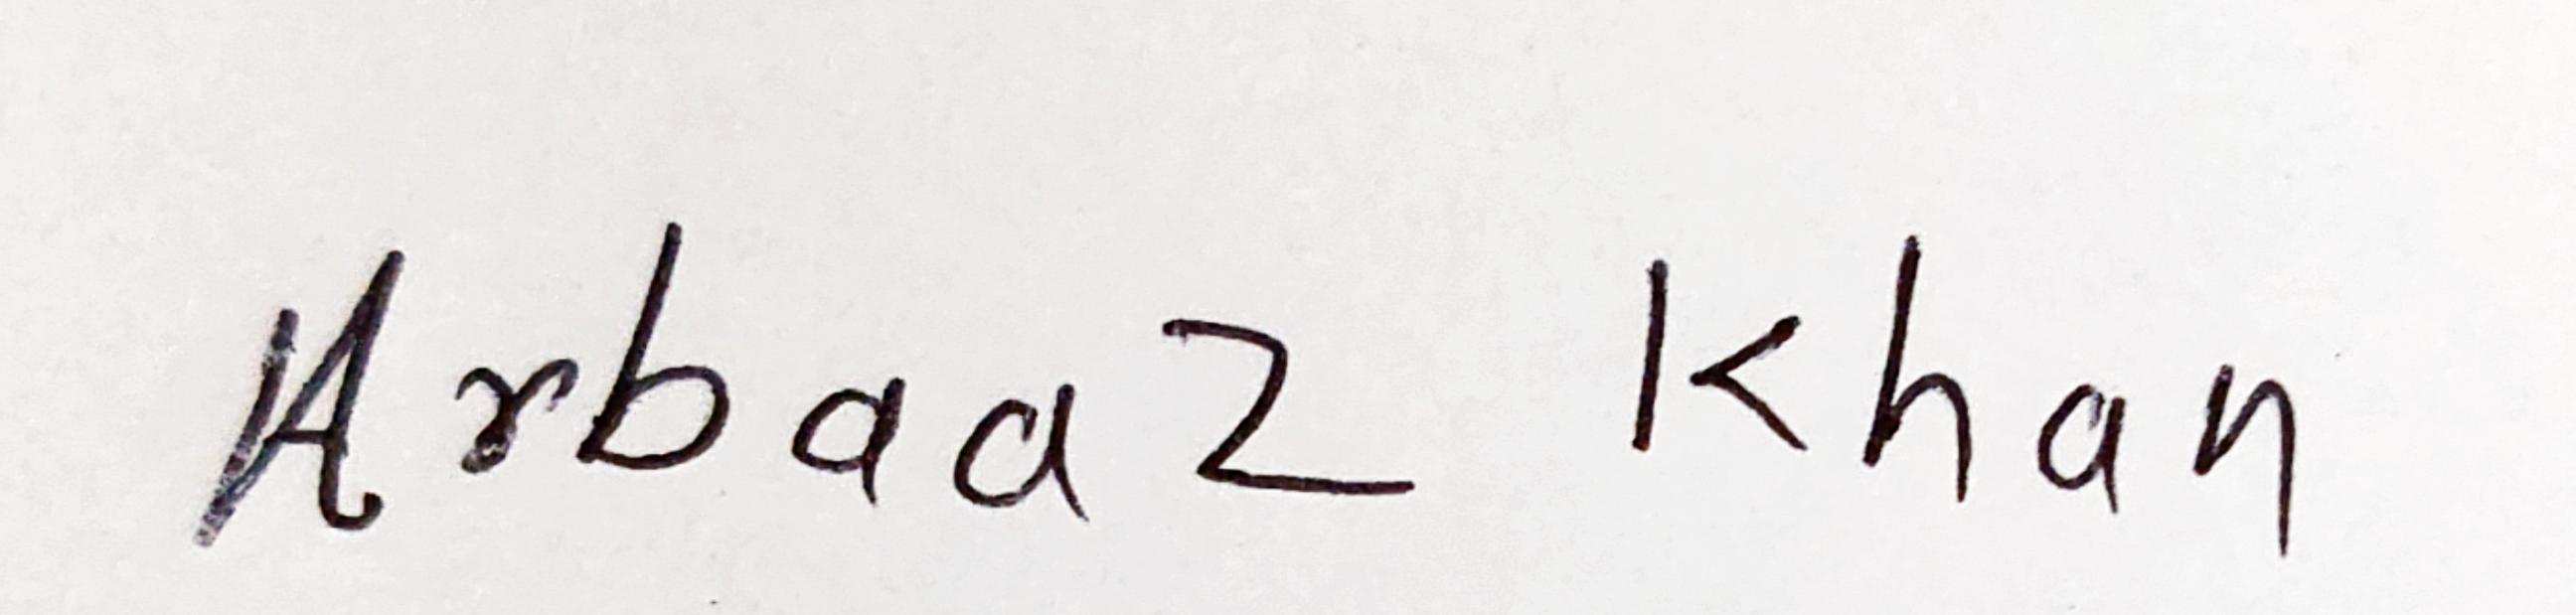 Arbaaz Khan